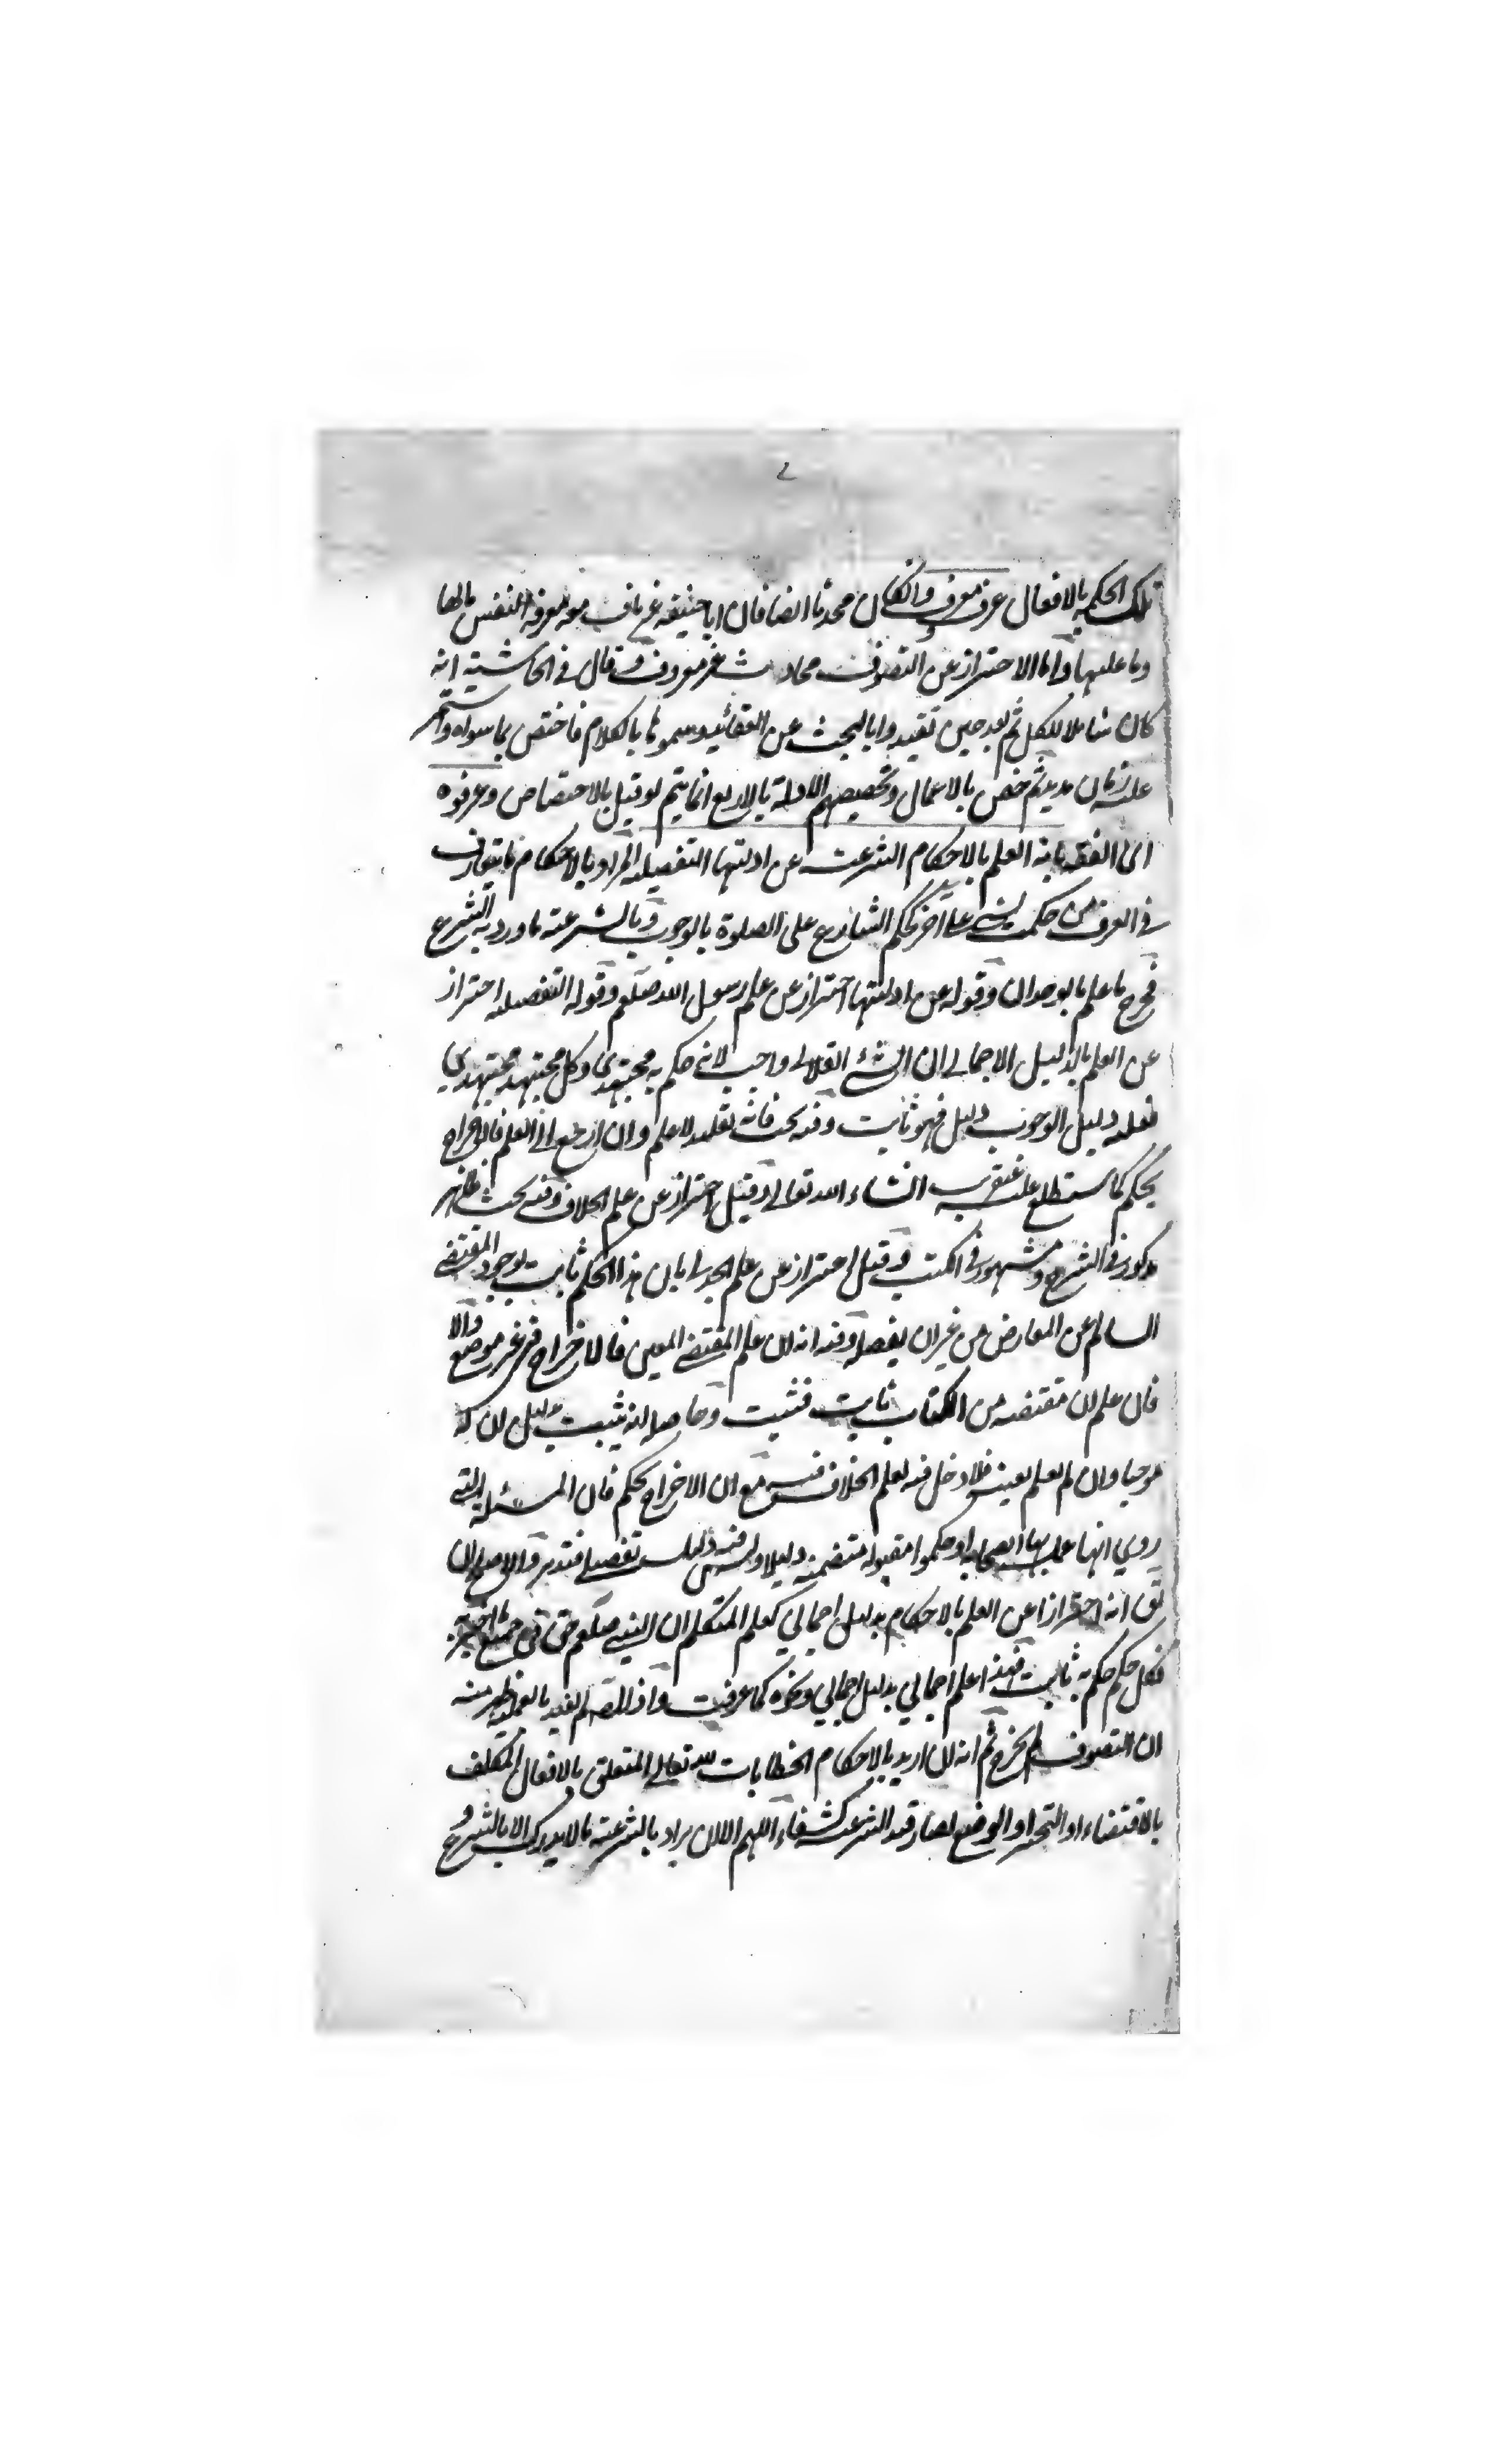 تلك الحكمية بالافعال عرف معرف وان كان محدثا ايضا فان ابا حنيفة عرفه بمعرفة النفس مالها
وما عليها واما الاحتراز عن التصوف محادث غير معروف وقال في الحاشية انه
كان شاملا للكل ثم بعد حين تقيدوا بالبحث عن العقائد وسموها بالكلام فاختص بما سواه واستمر
عليه زمان مديد ثم خص بالاعمال وتخصيصهم الادلة بالاربع انما يتم لو قيل بالاختصاص وعرفوه
اي الفقه بانه العلم بالاحكام الشرعية عن ادلتها التفصيلية المراد بالاحكام ما يتعارف
في العرف من حكمت بشيء على اخر كحكم الشارع على الصلوة بالوجوب وبالشرعية ما ورد به الشرع
فخرج ما علم بالوجدان وقوله عن ادلتها احتراز عن علم رسول الله صلعم وقوله التفصيلية احتراز
عن العلم بالدليل الاجمالي ان الشيء الفلاني واجب لانه حكم به مجتهدي وكل مجتهد مجتهدي
دليل الوجوب دليل فهو ثابت وفيه بحث فانه تقليد لا علم وان ارجع الى العلم فالاخراج
تحكم كما ستطلع عليه عنقريب انشاء الله تعالى وقيل احتراز عن علم الخلاف وفيه بحث ظهر
مذكور في الشرح ومشهور في الكتب وقيل احتراز عن علم الجدل بان هذا الحكم ثابت بوجود المقتضي
السالم عن المعارض من غير ان يفصله وفيه انه ان علم المقتضي المعين فالاخراج في غير موضع والا
فان علم ان مقتضيه من الكتاب ثابت فثبت وحاصله انه يثبت بدليل ان له
موجبا وان لم يعلم بعينه فلا دخل فيه لعلم الخلاف مع ان الاخراج تحكم فان المسئلة التي
روي انها عمل بها الصحابة او حكموا مقبولة متضمنة دليلا وليس فيه دليل تفصيلي فتدبر والاصلح ان
يق انه احترازا عن العلم بالاحكام بدليل اجمالي كعلم المتكلم ان النبي صلعم حق في جميع ما اخبر به
فكل حكم حكم به ثابت فهذا علم اجمالي بدليل اجمالي ونحوه كما عرفت واذ المصـ لم يقيد بالعملية ظهر منه
ان التصوف لم يخرج ثم انه ان اريد بالاحكام الخطابات لله تعالى المتعلق بالافعال المكلف
بالاقتضاء او التخيير او الوضع لصار قيد الشرعية كشفاء اللهم الا ان يراد بالشرعية ما لا يدرك الا بالشرع و